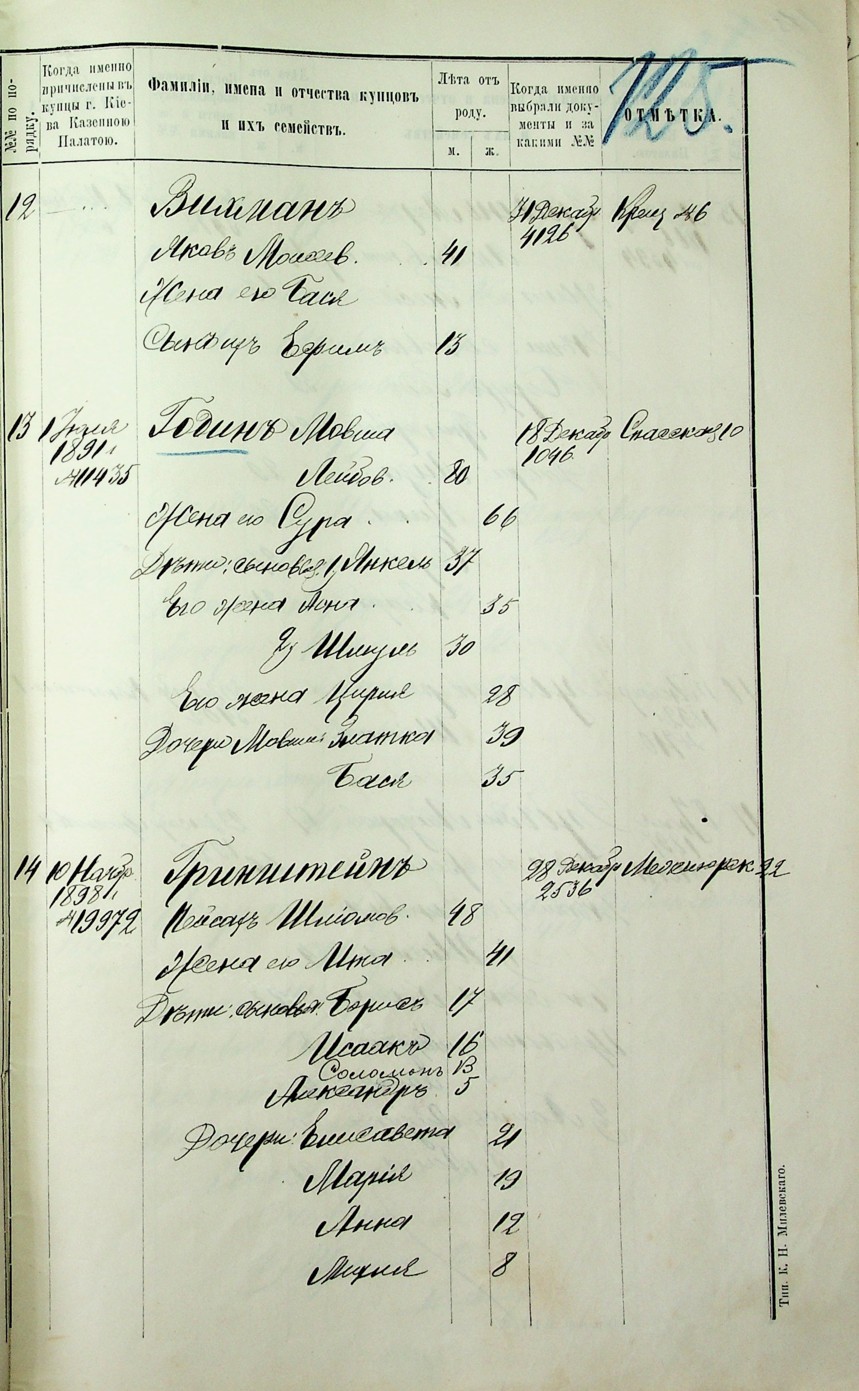 125.
№№ по по-
рядку.
Когда именно
причислены въ
купцы г. Кіе-
ва Казенною
Палатою.
Фамиліи, имена и отчества купцовъ
и ихъ семействъ.
Лѣта отъ
роду.
м. ж.
Когда именно
выбрали доку-
менты и за
какими №№
ОТМѢТКА.
12 Вихманъ 31 Декабр Крещ 46
4126
Яковъ Моисеев. 41
Жена его Бася
Сынъ ихъ Ефимъ 13
13 1 Іюля Годинъ Мовша 18 Декабр Спасская 10
1891 1046
№11435 Лейбов. 80
Жена его Сура 66
Дѣти: сыновья 1) Янкель 37
Его жена 35
2) Шмуль 30
Его жена Цирля 28
Дочери Мовши: Златка 39
Бася 35
14 10 Ноябр Гринштейнъ 28 Декабр Межигорск 22
1898 2536
№19972 Пейсахъ Шліомов. 48
Жена его Ита 41
Дѣти: сыновья: Борисъ 17
Исаакъ 16
Соломонъ 13
Александръ 5
Дочери: Елисавета 21
Марія 19
Анна 12
8
Тип. К. Н. Милевскаго.